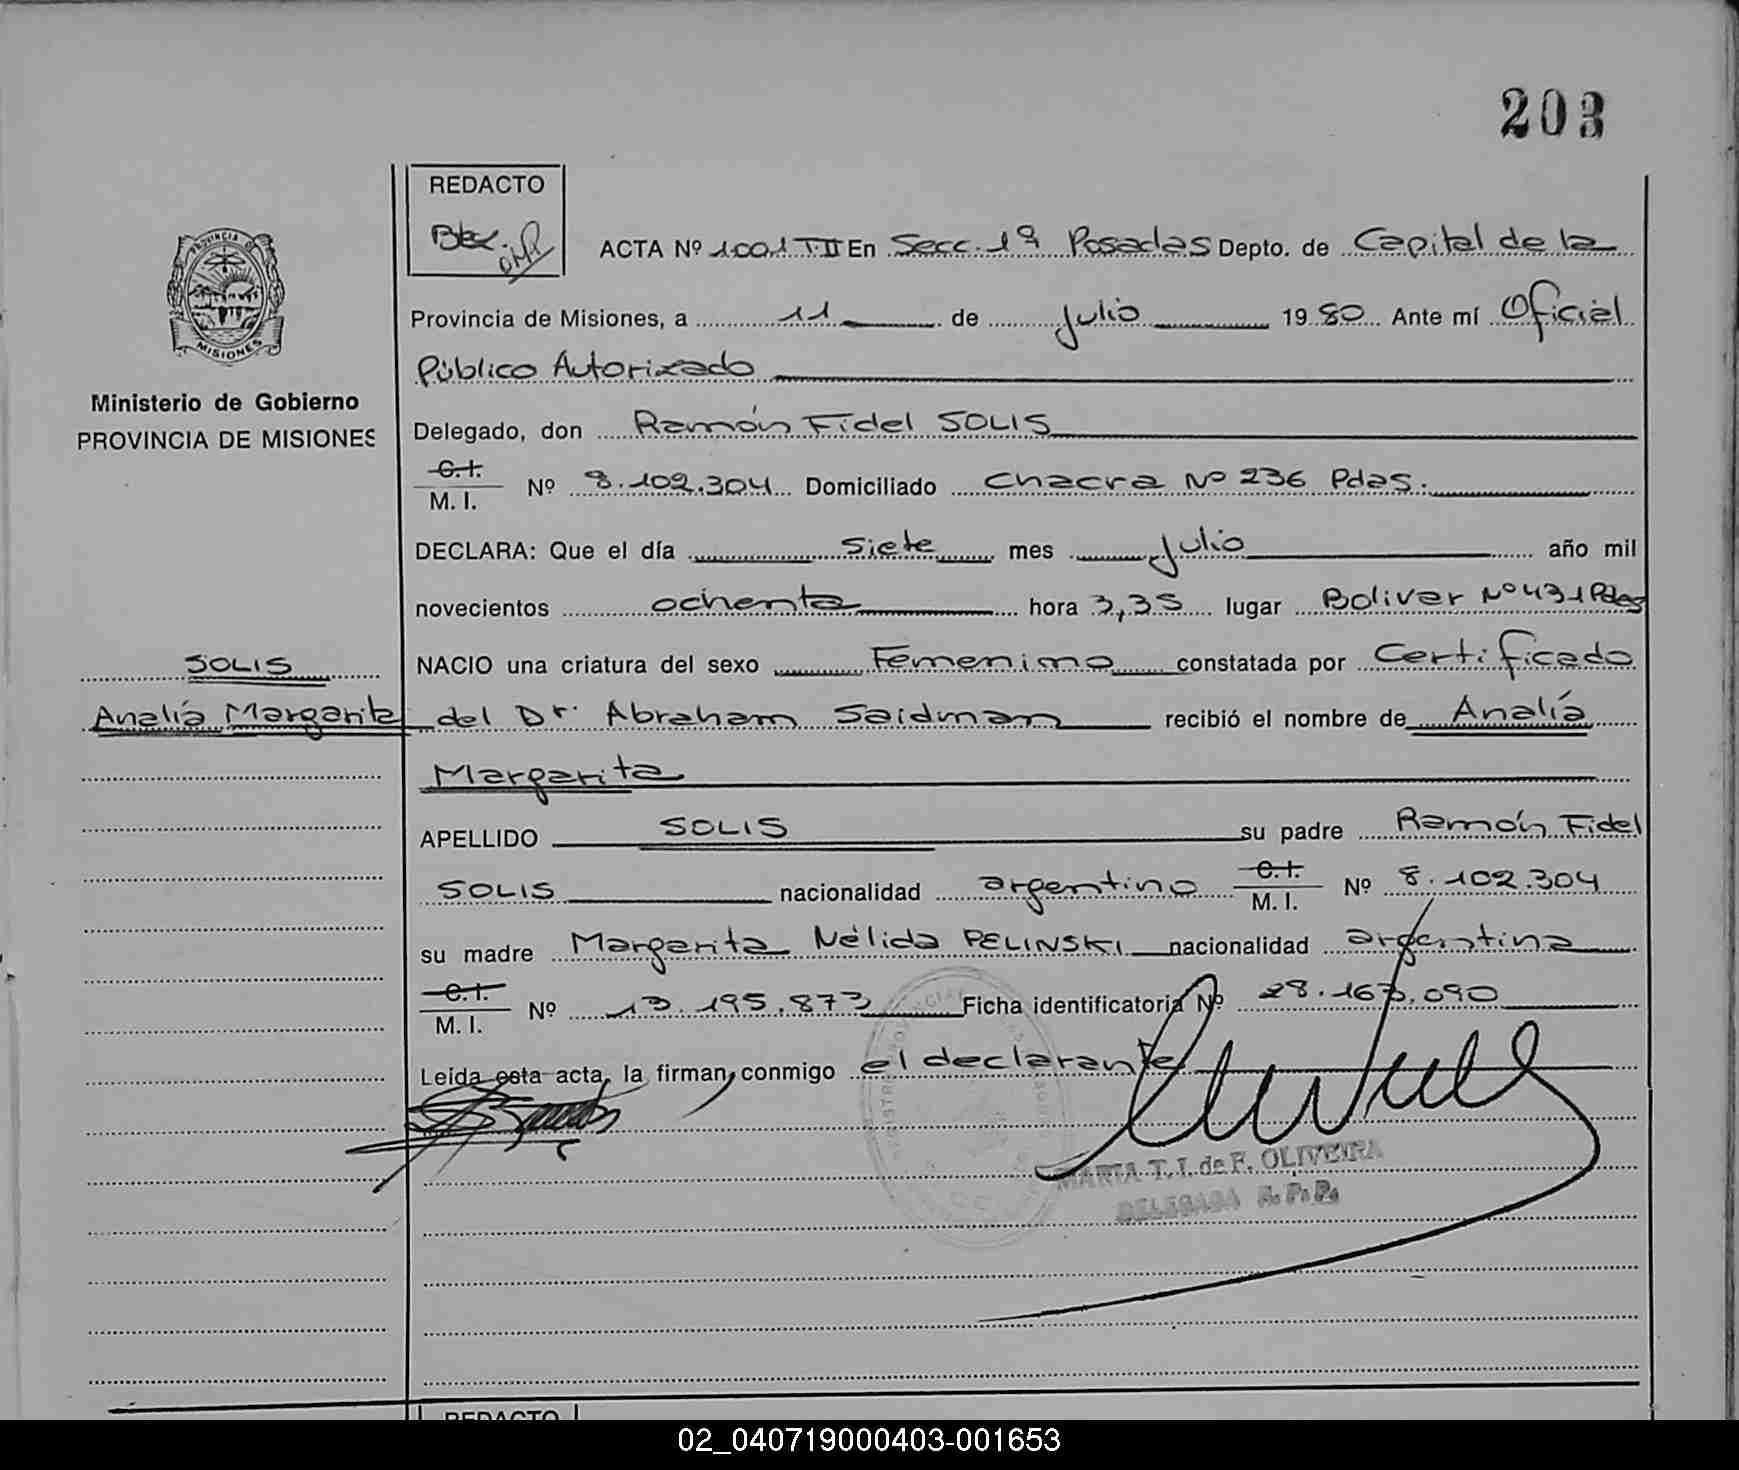 203
REDACTO
ACTA Nº 1001 T.II En Secc. 1ª Posadas Depto. de Capital de la
Provincia de Misiones, a 11 de Julio 1980 Ante mí Oficial
Público Autorizado
Delegado, don Ramón Fidel SOLIS
C.I.
M. I. Nº 8.102.304 Domiciliado Chacra Nº 236 Pdas.
DECLARA: Que el día siete mes Julio año mil
novecientos ochenta hora 3,35 lugar Bolivar Nº 431 Pdas
NACIO una criatura del sexo Femenino constatada por Certificado
del Dr. Abraham Saidman recibió el nombre de Analía
Margarita
APELLIDO SOLIS su padre Ramón Fidel
SOLIS nacionalidad argentino C.I. M. I. Nº 8.102.304
su madre Margarita Nélida PELINSKI nacionalidad argentina
C.I.
M. I. Nº 13.195.873 Ficha identificatoria Nº 28.163.090
Leída esta acta, la firman, conmigo el declarante
MARIA T. I. de F. OLIVEIRA
DELEGADA R. P. P.
PROVINCIA DE
MISIONES
Ministerio de Gobierno
PROVINCIA DE MISIONES
SOLIS
Analía Margarita
REDACTO
02_040719000403-001653